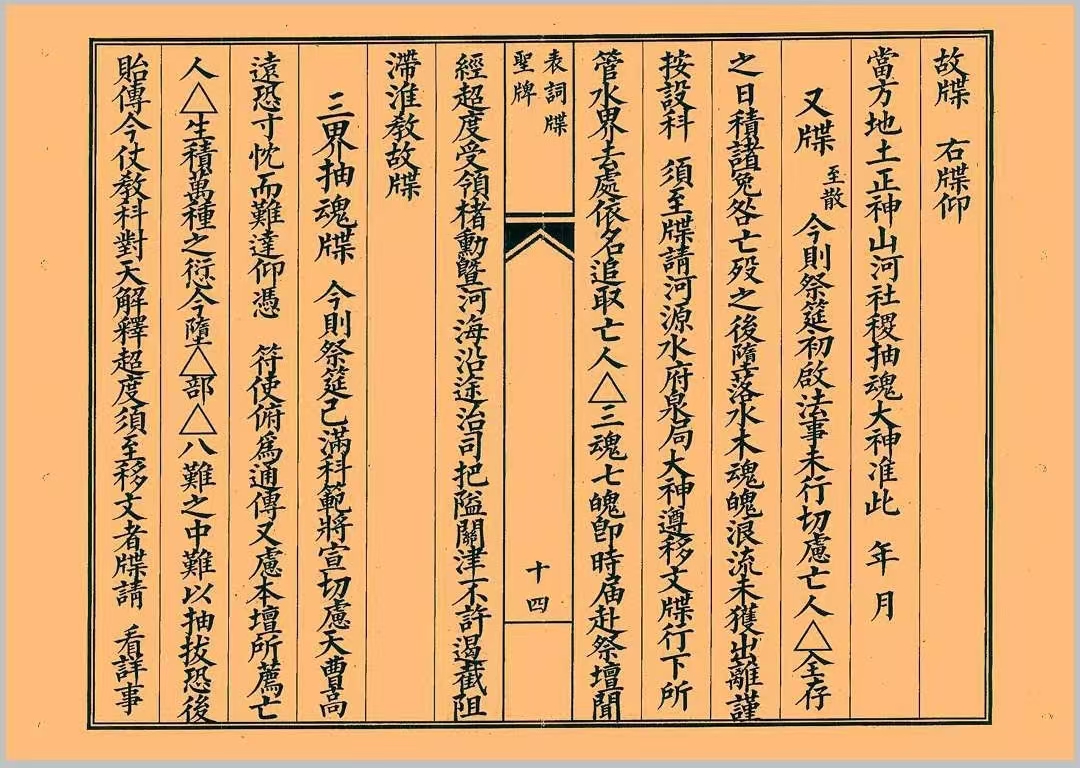 故牒　右牒仰
當方地土正神山河社稷抽魂大神准此　年月
又牒　至散　今則祭筵初啟法事未行切慮亡人△全存
之日積諸冤咎亡殁之後墮落水木魂魄浪流未獲出離謹
按設科　須至牒請河源水府泉局大神遵移文牒行下所
管水界去處依名追取亡人△三魂七魄即時届赴祭壇聞
表詞牒
聖牌
十四
經超度受領楮動暨河海沿途治司把隘關津不許遏截阻
滯准教故牒
三界抽魂牒　今則祭筵已滿科範將宣切慮天曹高
遠恐寸忱而難達仰憑　符使俯爲通傳又慮本壇所薦亡
人△生積萬種之愆今墮△部△八難之中難以抽拔恐後
貽傳今仗教科對天解釋超度須至移文者牒請　看詳事